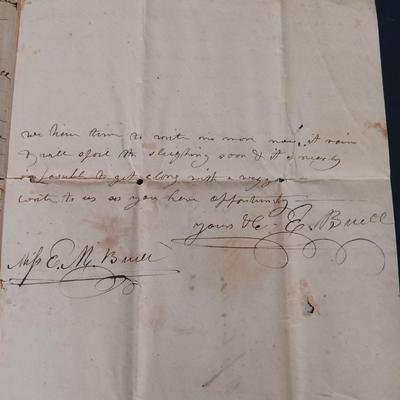 we have time to write no more now, it rains
& will spoil the sleighing soon & it is nearly
to get along with a waggon
write to us as you have opportunity
yours &c - E. Buell
Miss E. M. Buell